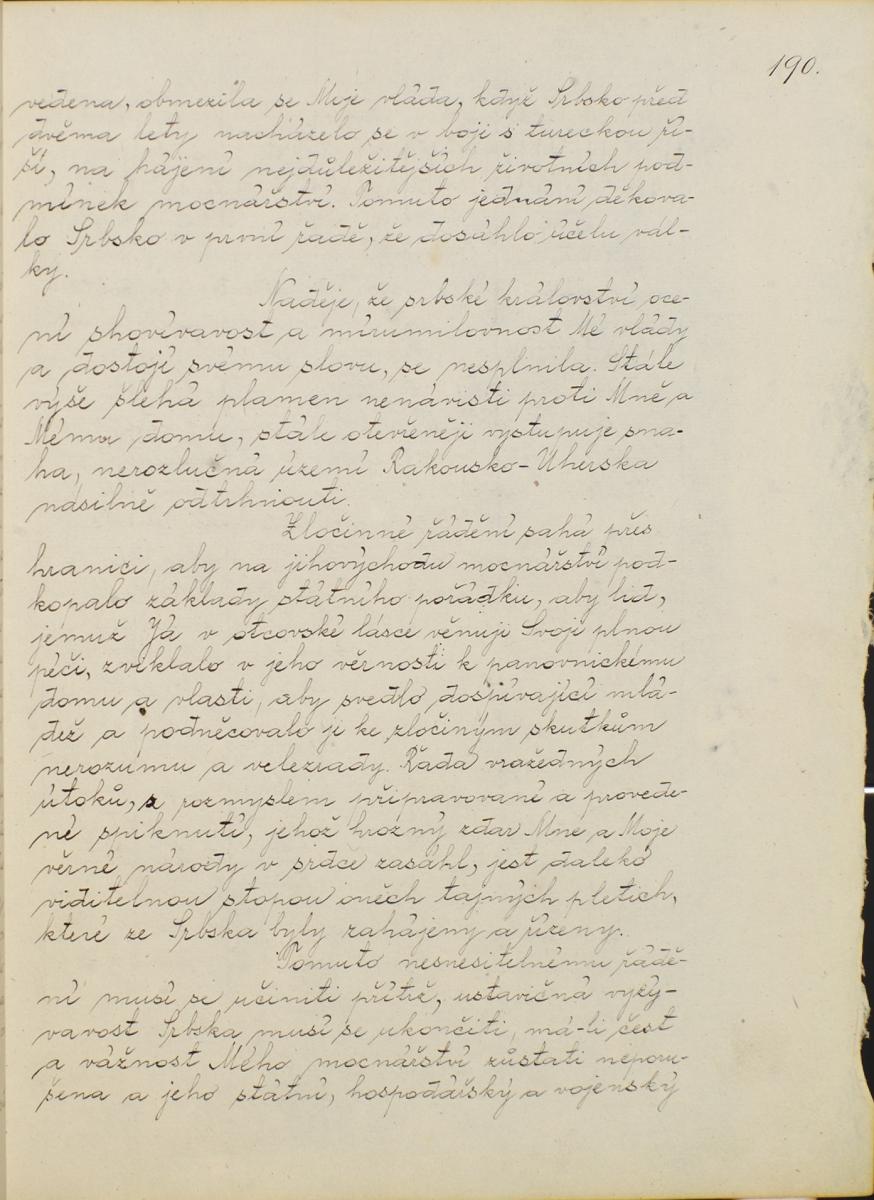 190.
vedena, obmezila se Moje vláda, když Srbsko před
dvěma lety nacházelo se v boji s tureckou ří-
ší, na hájení nejdůležitějších životních pod-
mínek mocnářství. Tomuto jednání děkova-
lo Srbsko v první řadě, že dosáhlo účelu vál-
ky.
Naděje, že srbské království oce-
ní shovívavost a mírumilovnost Mé vlády
a dostojí svému slovu, se nesplnila. Stále
výše šlehá plamen nenávisti proti Mně a
Mému domu, stále otevřeněji vystupuje sna-
ha, nerozlučná území Rakousko-Uherska
násilně odtrhnouti.
Zločinné řádění sahá přes
hranici, aby na jihovýchodu mocnářství pod-
kopalo základy státního pořádku, aby lid,
jemuž Já v otcovské lásce věnuji Svoji plnou
péči, zviklalo v jeho věrnosti k panovnickému
domu a vlasti, aby svedlo dospívající mlá-
dež a podněcovalo ji ke zločiným skutkům
nerozumu a velezrady. Řada vražedných
útoků, z rozmyslem připravované a provede-
né spiknutí, jehož hrozný zdar Mne a Moje
věrné národy v srdce zasáhl, jest daleko
viditelnou stopou oněch tajných pletich,
které ze Srbska byly zahájeny a řízeny.
Tomuto nesnesitelnému řádě-
ní musí se učiniti přítrž, ustavičná vyzý-
vavost Srbska musí se ukončiti, má-li čest
a vážnost Mého mocnářství zůstati neporu-
šena a jeho státní, hospodářský a vojenský